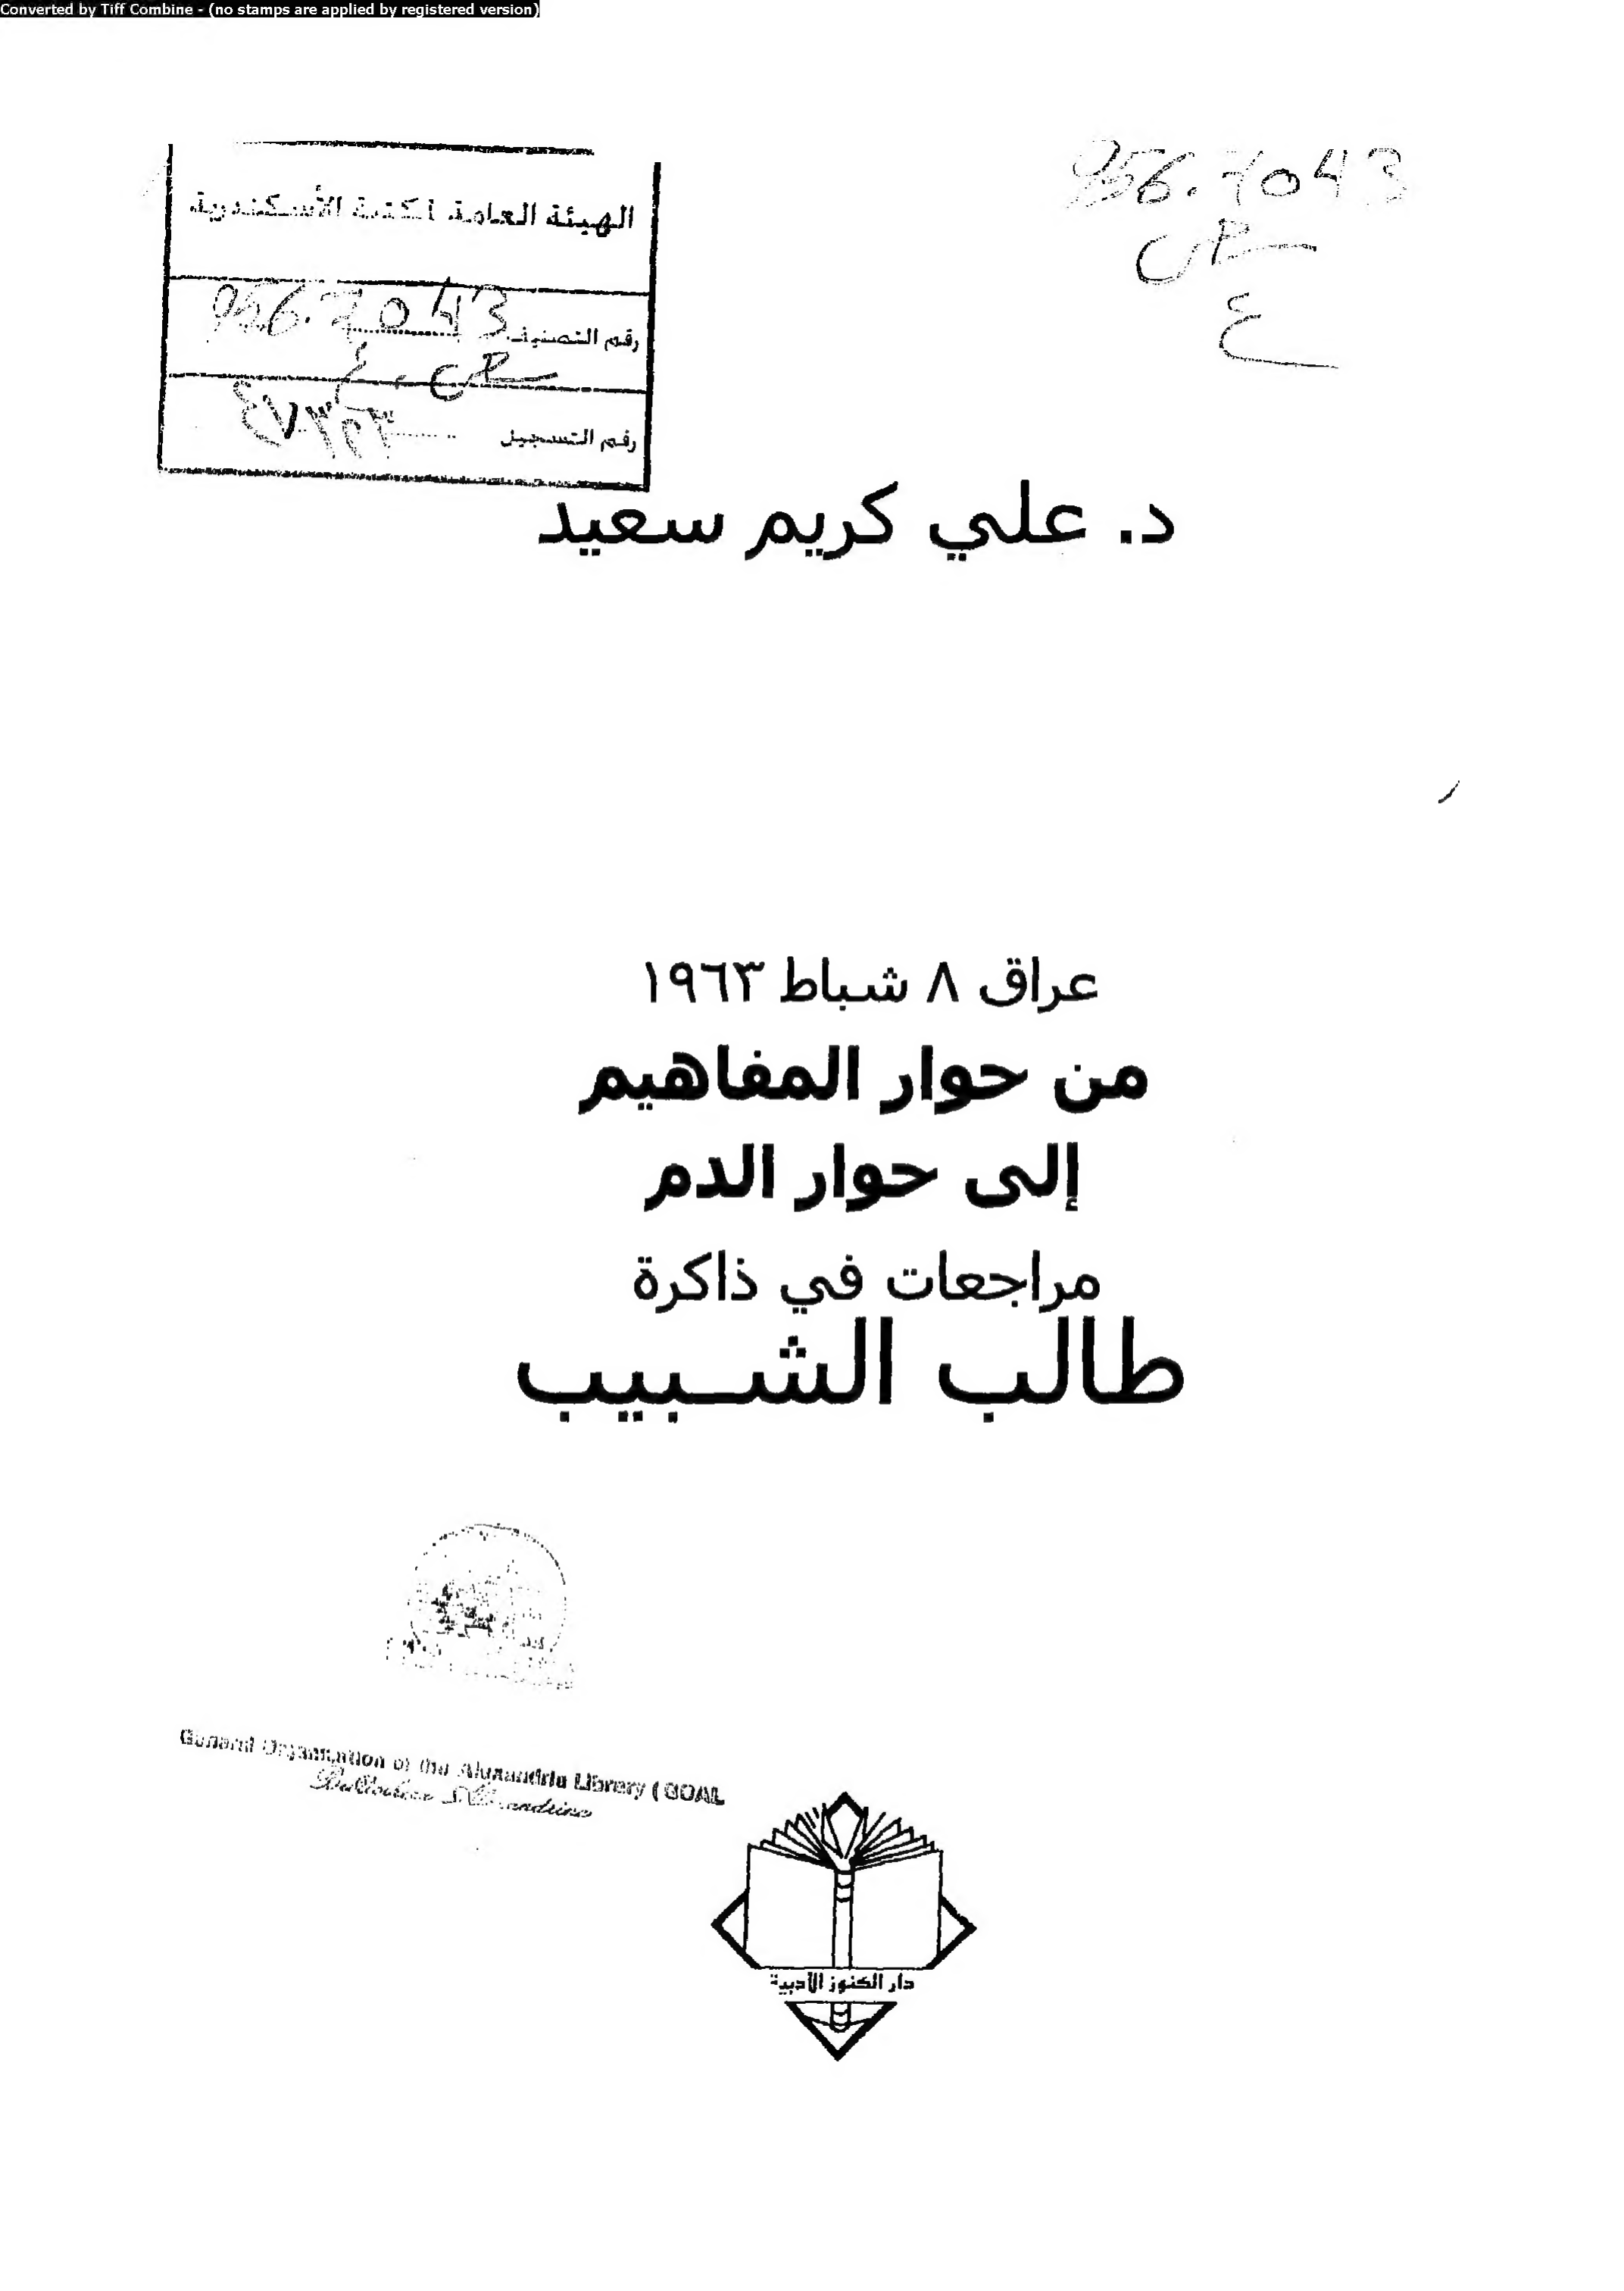 Converted by Tiff Combine - (no stamps are applied by registered version)
956.7043
ع
الهيئة العامة لمكتبة الأسكندرية
رقم التصنيف 956.7043
رقم التسجيل
د. علي كريم سعيد
عراق ٨ شباط ١٩٦٣
من حوار المفاهيم
إلى حوار الدم
مراجعات في ذاكرة
طالب الشـبيب
General Organization of the Alexandria Library (GOAL
Bibliotheca Alexandrina
دار الكنوز الأدبية